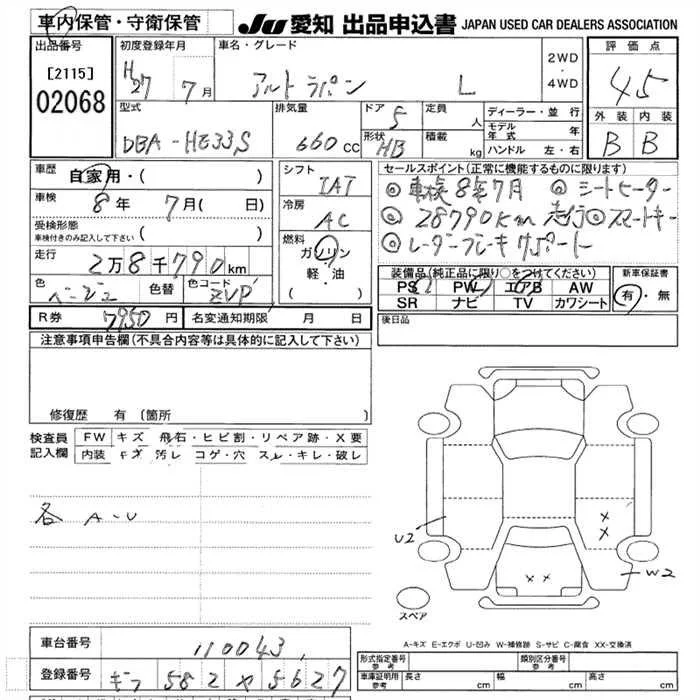 車内保管・守衛保管
JU 愛知 出品申込書 JAPAN USED CAR DEALERS ASSOCIATION
出品番号
[2115]
02068
初度登録年月
H27 7月
車名・グレード
アルトラパン L
2WD
・
4WD
評価点
4.5
外装 内装
B B
型式
DBA-HE33S
排気量
660 CC
ドア 5
形状 HB
定員 人
積載 kg
ディーラー・並行
モデル年式 年
ハンドル 左・右
車歴
自家用・( )
車検
8年 7月 ( 日)
受検形態
車検付きのみ記入して下さい ( )
走行
2万8千790km
色 ベージュ
色替
色コード ZVP
シフト
IAT
冷房
AC
燃料
ガソリン
軽・油
( )
セールスポイント(正常に機能するものに限ります)
◎車検8年7月 ◎シートヒーター
◎28790km走行◎スマートキー
◎レーダーブレーキサポート
装備品(純正品に限り○をつけてください)
PS PW エアB AW
SR ナビ TV カワシート
新車保証書
有・無
後日品
R券 7950円
名変通知期限 月 日
注意事項申告欄(不具合内容等は具体的に記入して下さい)
修復歴 有 〔箇所 〕
検査員記入欄
FW キズ 飛石・ヒビ割・リペア跡・X要
内装 キズ 汚レ コゲ・穴 スレ・キレ・破レ
各 A-U
U2
X
X
X X
W2
スペア
A-キズ E-エクボ U-凹み W-補修跡 S-サビ C-腐食 XX-交換済
車台番号
110043
登録番号
ギフ 582 ヤ 5627
形式指定番号 参考
類別区分番号 参考
車庫証明用 参考
長さ cm 幅 cm 高さ cm